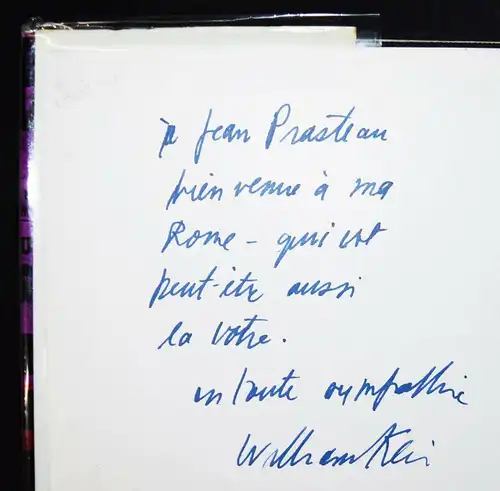 à Jean Prasteau
bienvenue à ma
Rome - qui est
peut-être aussi
la votre.
en toute sympathie
William Klein